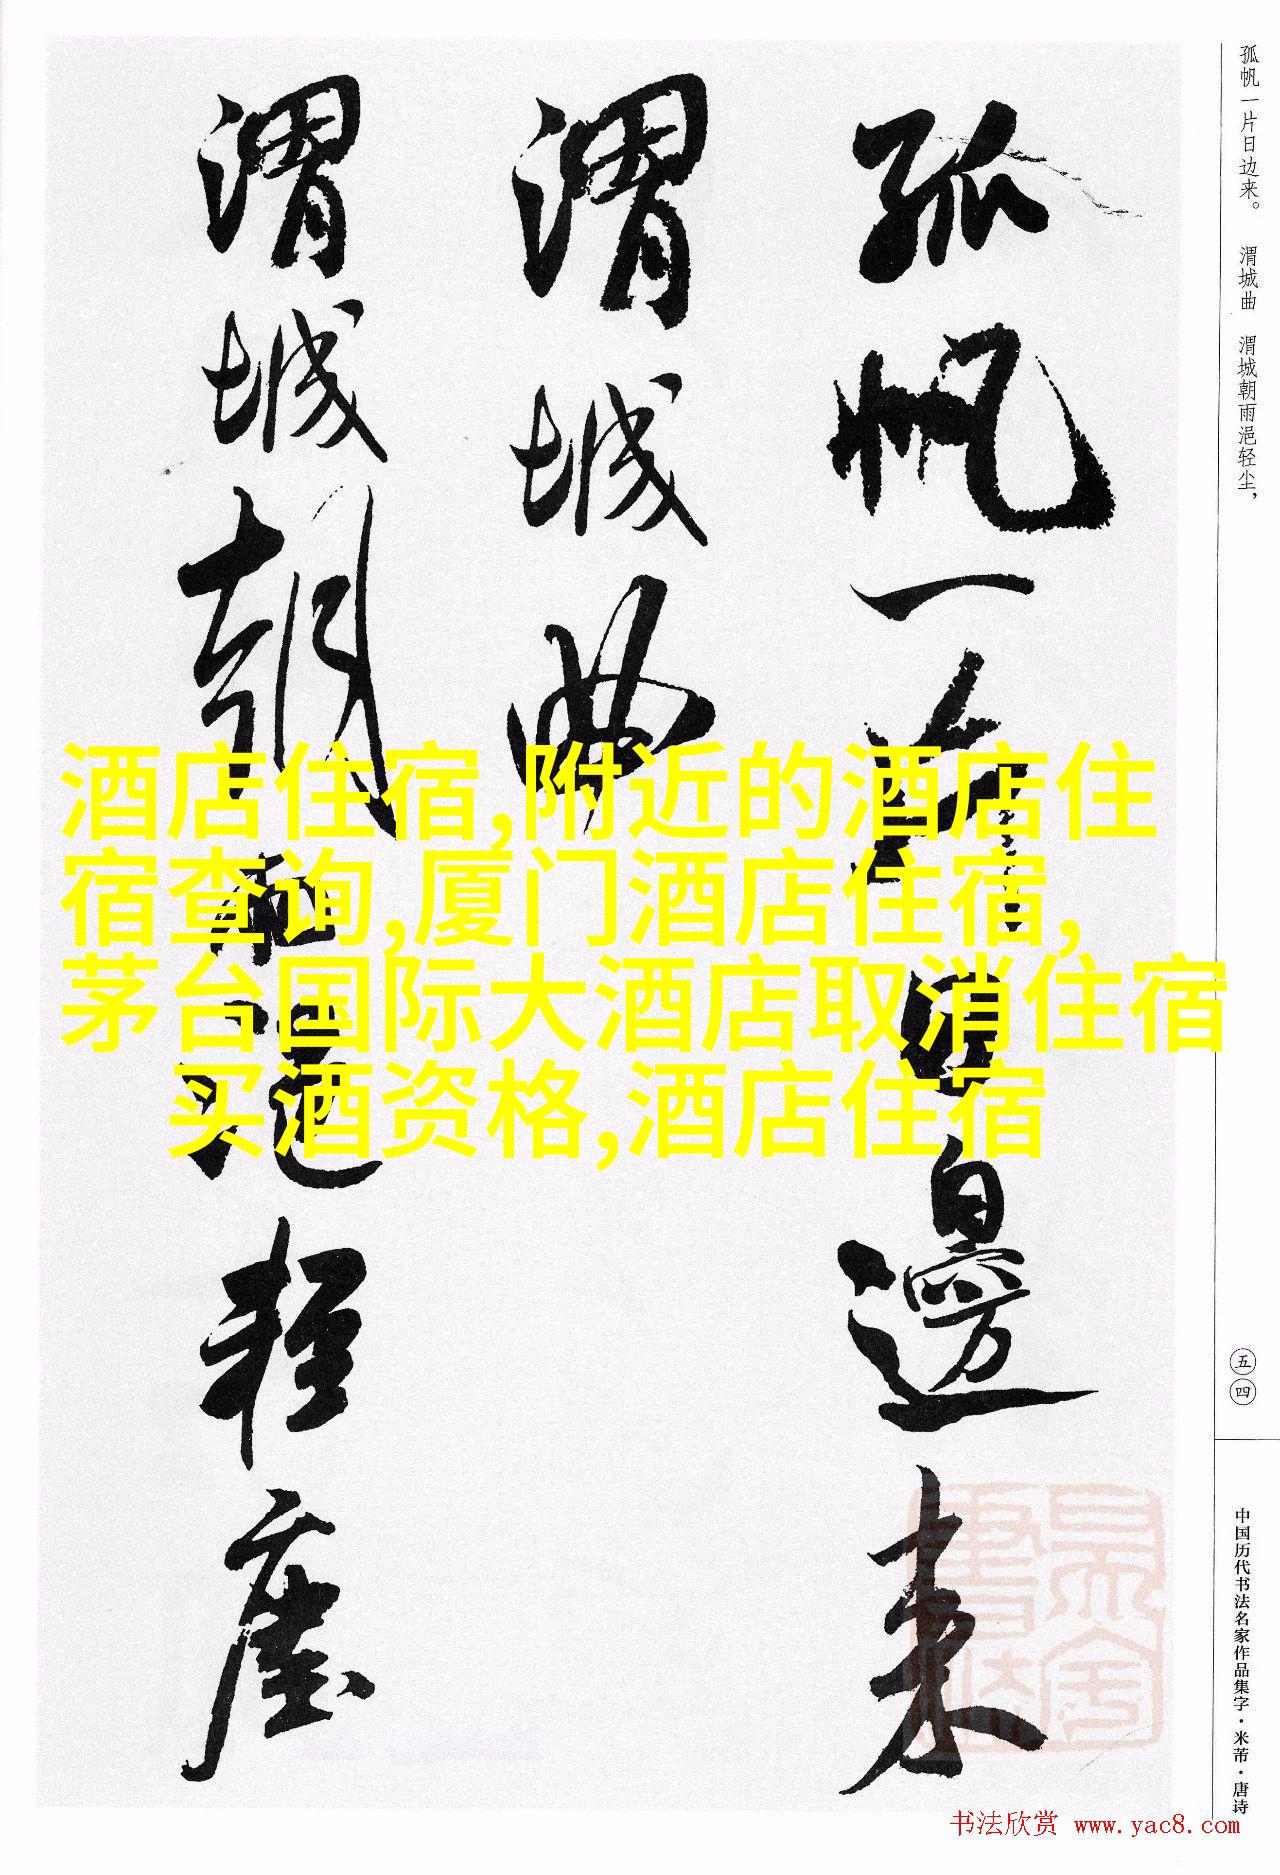 孤帆一片日边来。 渭城曲 渭城朝雨浥轻尘，
孤帆一片日邊来
渭城曲
渭城朝雨浥轻塵
酒店住宿,附近的酒店住
宿查询,厦门酒店住宿,
茅台国际大酒店取消住宿
买酒资格,酒店住宿
五四
中国历代书法名家作品集字·米芾·唐诗
书法欣赏 www.yac8.com